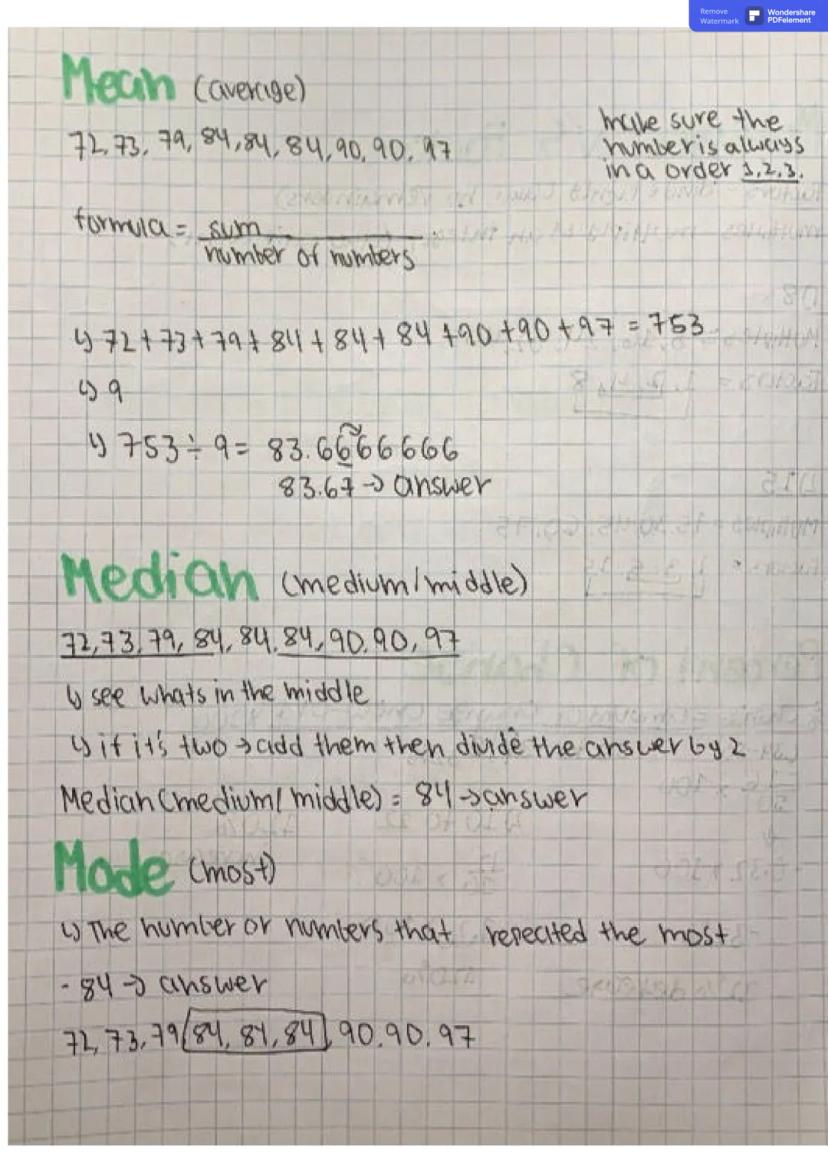 Remove
Watermark
Wondershare
PDFelement
Mean (average)
72, 73, 79, 84, 84, 84, 90, 90, 97
make sure the
number is always
in a order 1,2,3.
formula = sum
number of numbers
↳ 72 + 73 + 79 + 84 + 84 + 84 + 90 + 90 + 97 = 753
↳ 9
↳ 753 ÷ 9 = 83.6666666
83.67 → answer
Median (medium/middle)
72, 73, 79, 84, 84, 84, 90, 90, 97
↳ see whats in the middle
↳ if it's two → add them then divide the answer by 2
Median (medium/middle) = 84 → answer
Mode (most)
↳ The number or numbers that repeated the most
- 84 → answer
72, 73, 79, 84, 84, 84, 90, 90, 97